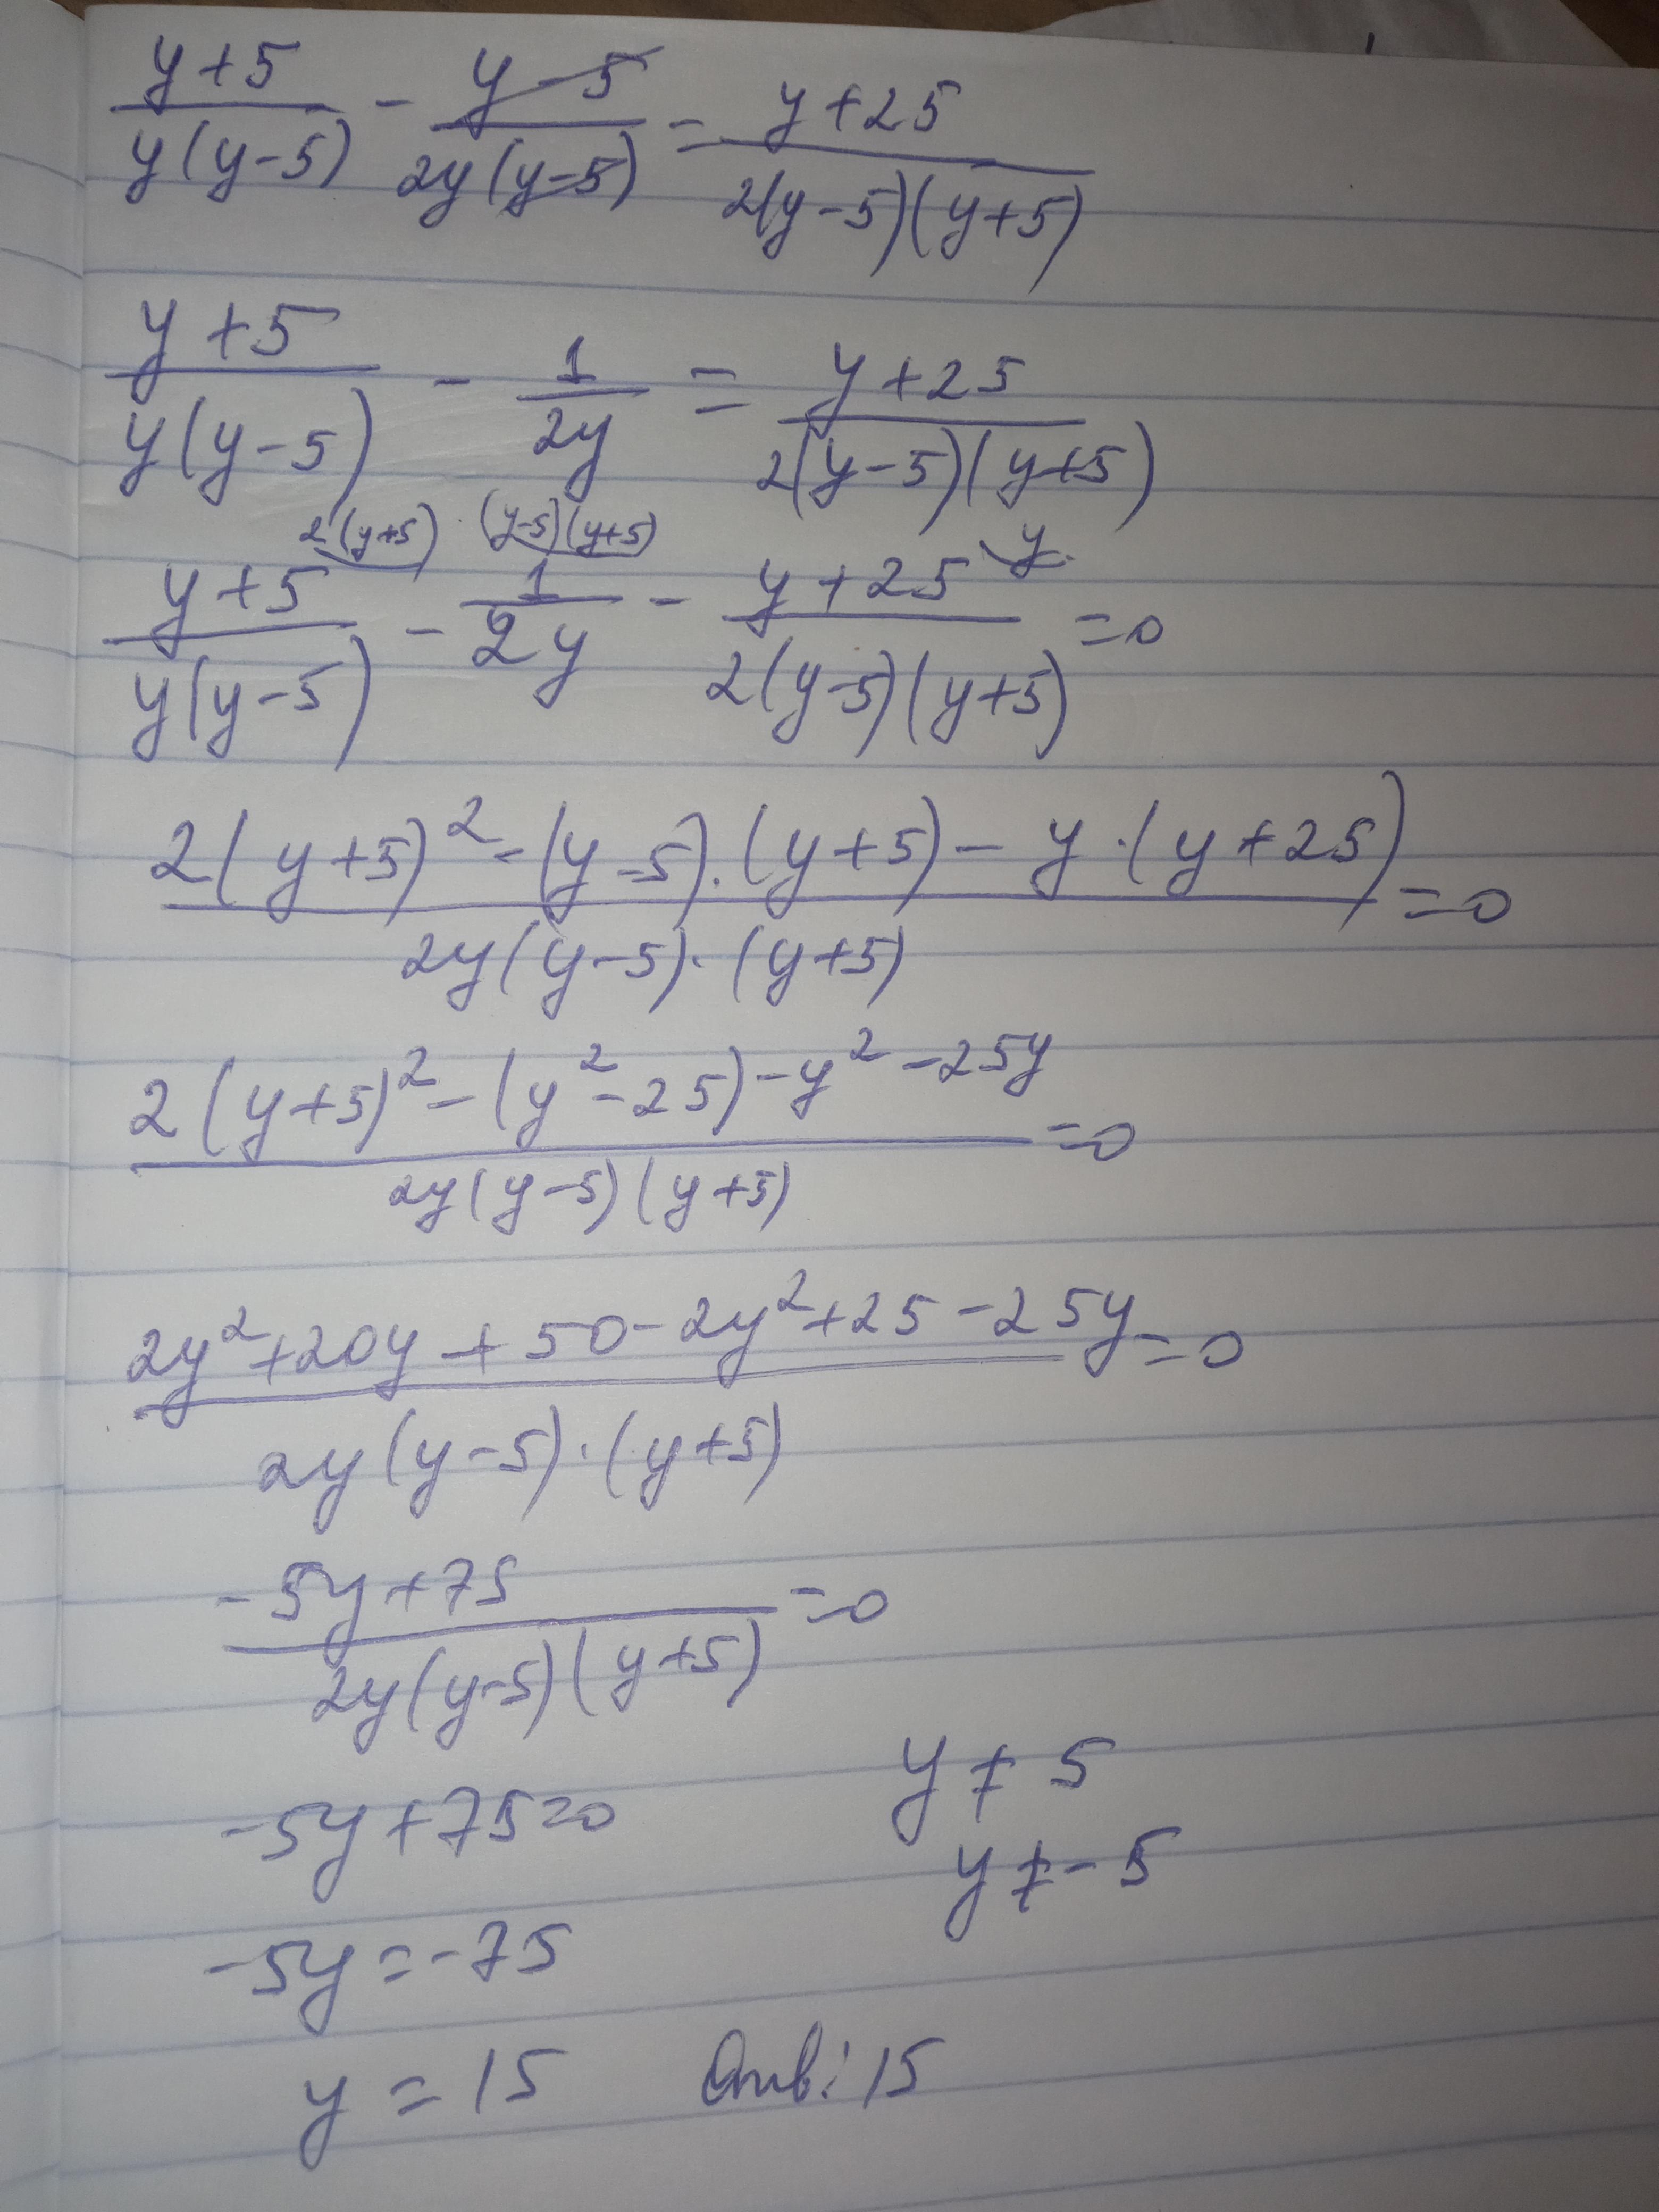 (y+5)/(y(y-5)) - (y-5)/(2y(y-5)) = (y+25)/(2(y-5)(y+5))
(y+5)/(y(y-5)) - 1/(2y) = (y+25)/(2(y-5)(y+5))
2(y+5) (y-5)(y+5) y
(y+5)/(y(y-5)) - 1/(2y) - (y+25)/(2(y-5)(y+5)) = 0
(2(y+5)² - (y-5)·(y+5) - y·(y+25))/(2y(y-5)·(y+5)) = 0
(2(y+5)² - (y²-25) - y² - 25y)/(2y(y-5)(y+5)) = 0
(2y² + 20y + 50 - 2y² + 25 - 25y)/(2y(y-5)·(y+5)) = 0
(-5y+75)/(2y(y-5)(y+5)) = 0
-5y+75=0 y ≠ 5
y ≠ -5
-5y = -75
y = 15 Отв: 15